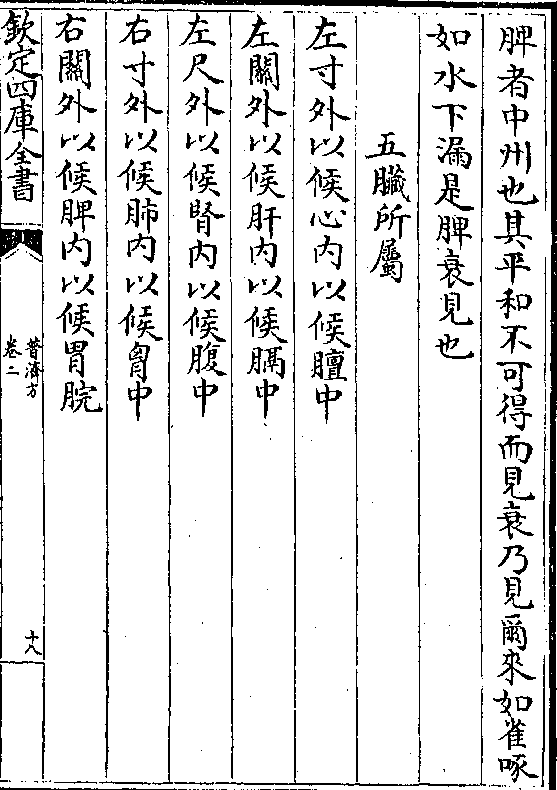 脾者中州也其平和不可得而見衰乃見爾來如雀啄
如水下漏是脾衰見也
五臟所屬
左寸外以候心內以候膻中
左關外以候肝內以候膈中
左尺外以候腎內以候腹中
右寸外以候肺內以候胷中
右關外以候脾內以候胃脘
欽定四庫全書
普濟方
卷二
十八